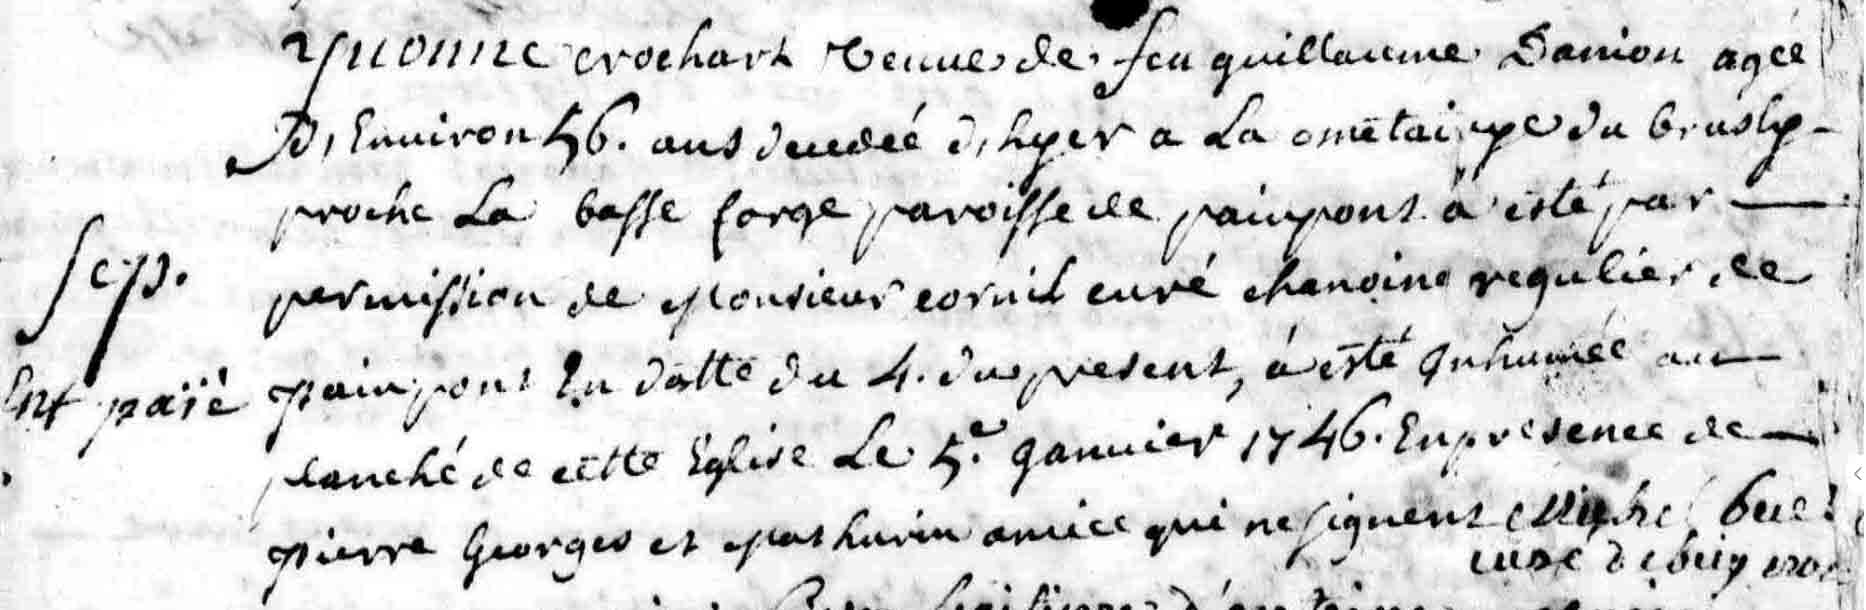 Yuonne crochart Veuue de feu guillaume Danion agée
D'Enuiron 56. ans decedée d'hyer a La metairye du brusly
proche La basse forge paroisse de painpont a esté par
Sep.
permission de Monsieur cornil curé chanoine regulier de
Ent païé
painpont En datte du 4. du present, à esté Jnhumée au
planché de cette Eglise Le 5.e Januier 1746. En presence de
pierre Georges et Mathurin amice qui ne signent